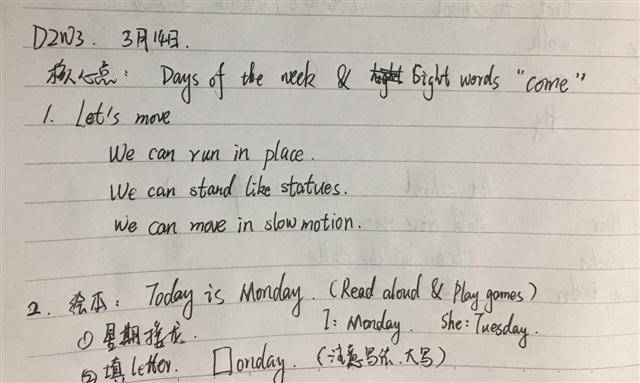 D2W3. 3月14日.
核心点: Days of the week & Sight words "come"
1. Let's move
We can run in place.
We can stand like statues.
We can move in slow motion.
2. 绘本: Today is Monday. (Read aloud & Play games)
① 星期接龙. I: Monday. She: Tuesday.
② 填 letter. □onday. (注意写法.大写)